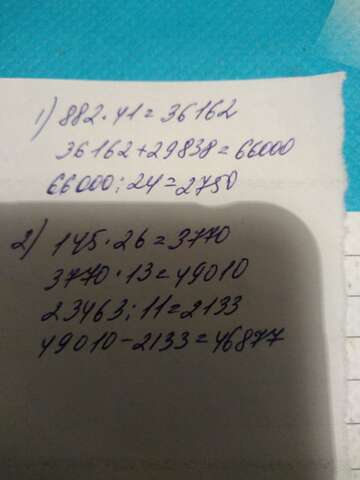 1) 882·41=36162
36162+29838=66000
66000:24=2750
2) 145·26=3770
3770·13=49010
23463:11=2133
49010-2133=46877